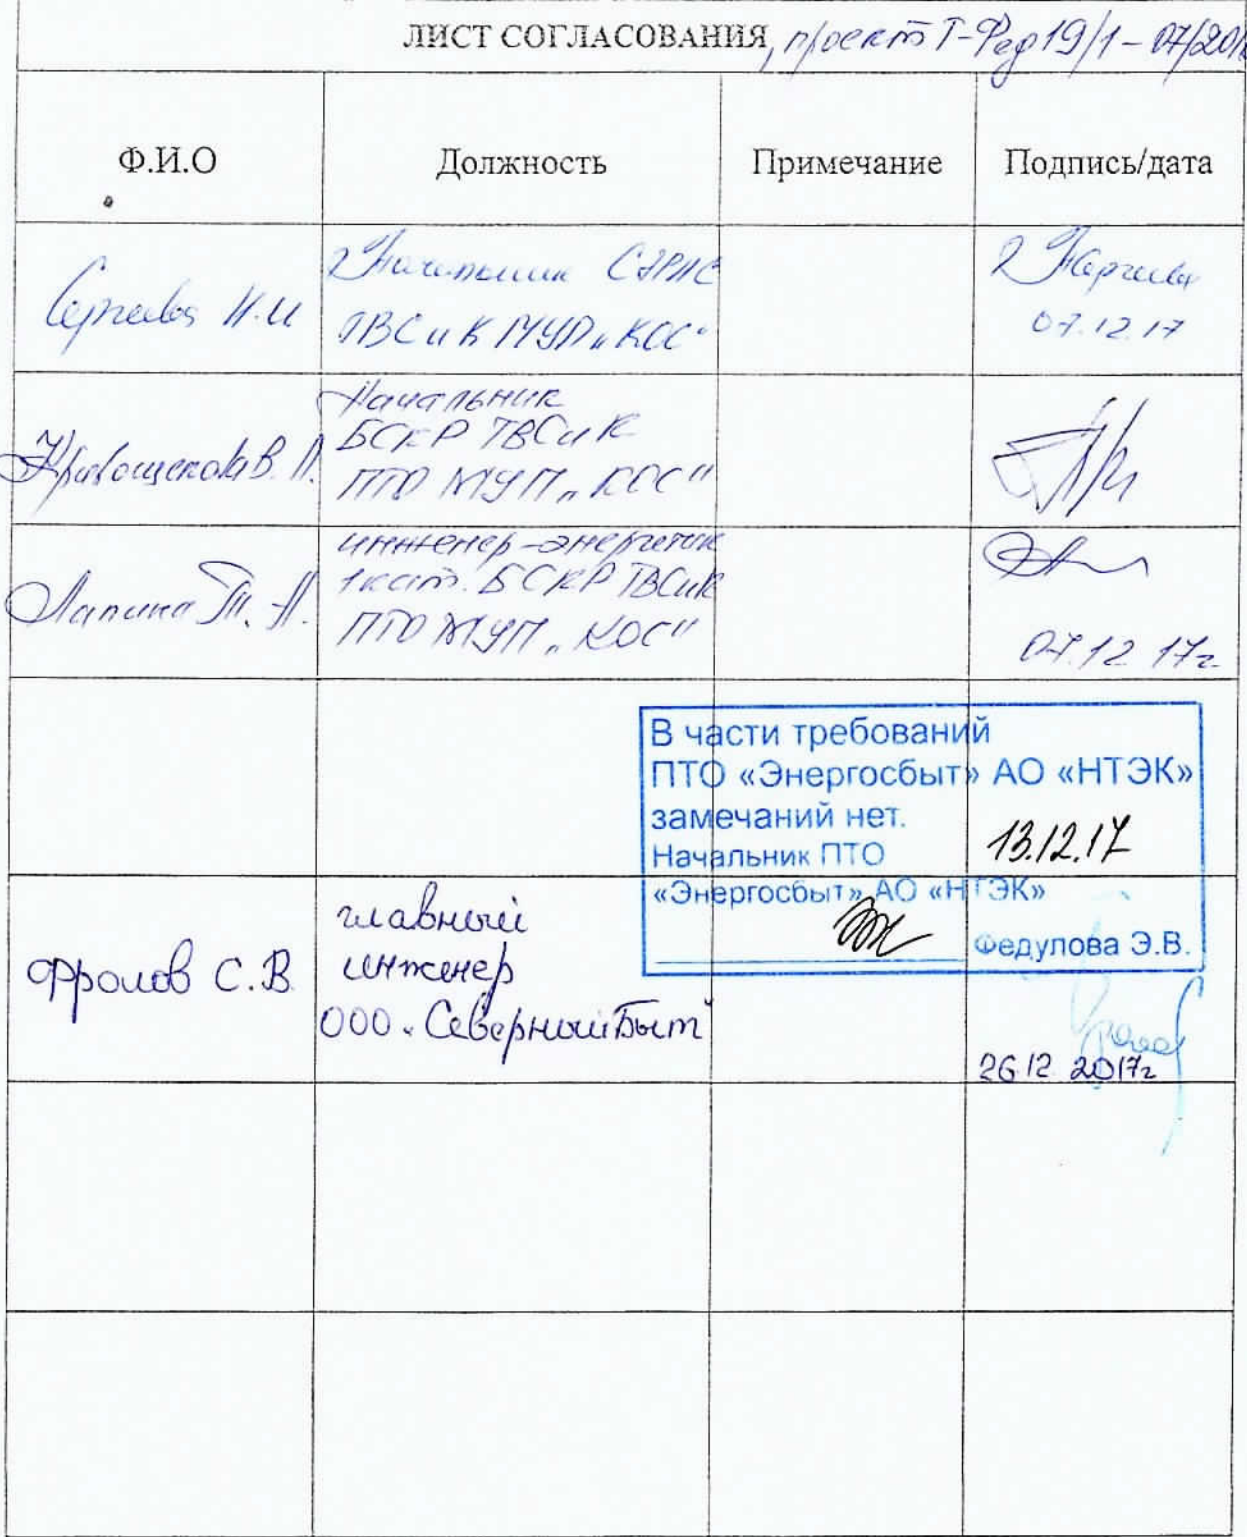 ЛИСТ СОГЛАСОВАНИЯ, проект Т-Фед19/1-07/201
Ф.И.О
Должность
Примечание
Подпись/дата
Сергеева Н.И
Начальник
ТВСиК МУП „КОС"
07.12.17
Кривощекова В.
Начальник
БСКР ТВСиК
ПТО МУП „КОС"
Лапина Т. А.
инженер-энергетик
1 кат. БСКР ТВСиК
ПТО МУП „КОС"
07.12 17г
В части требований
ПТО «Энергосбыт» АО «НТЭК»
замечаний нет.
13.12.17
Начальник ПТО
«Энергосбыт» АО «НТЭК»
Федулова Э.В.
Фролов С.В.
главный
инженер
ООО „Северный Быт"
26 12 2017г